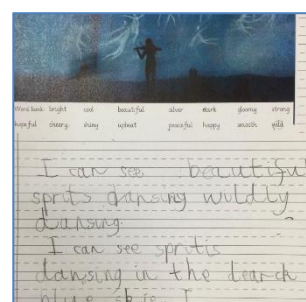 Word bank: bright cool beautiful silver dark gloomy strong
hopeful cheery shiny upbeat peaceful happy smooth wild
I can see beautiful
sprits dansing wildly
dansing.
I can see spritis
dansing in the
blue